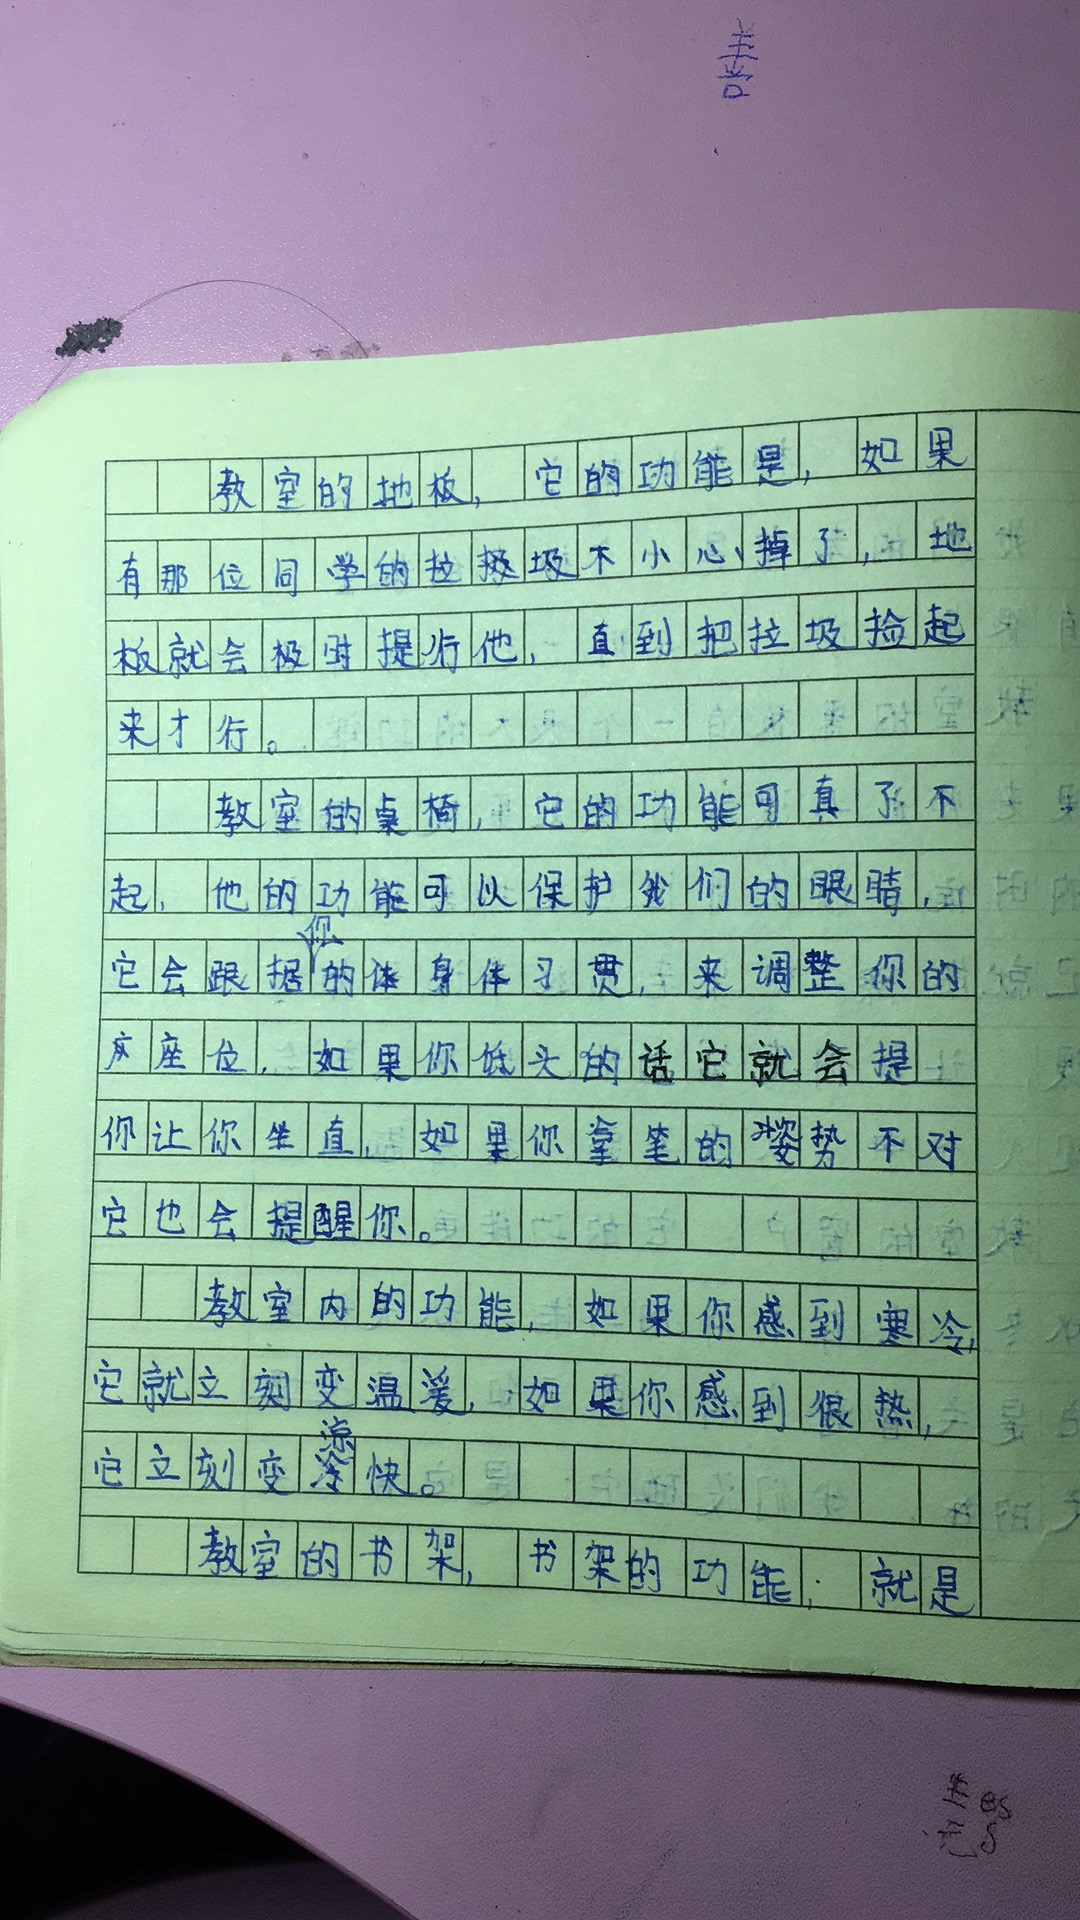 教室的地板，它的功能是，如果
有那位同学的垃圾圾不小心掉了，地
板就会极时提行他，直到把垃圾捡起
来才行。
教室的桌椅，它的功能可真了不
起，他的功能可以保护我们的眼睛，
它会跟据你的体身体习贯，来调整你的
座位，如果你低头的话它就会提
你让你坐直，如果你拿笔的姿势不对
它也会提醒你。
教室内的功能，如果你感到寒冷，
它就立刻变温暖，如果你感到很热，
它立刻变凉快。
教室的书架，书架的功能，就是